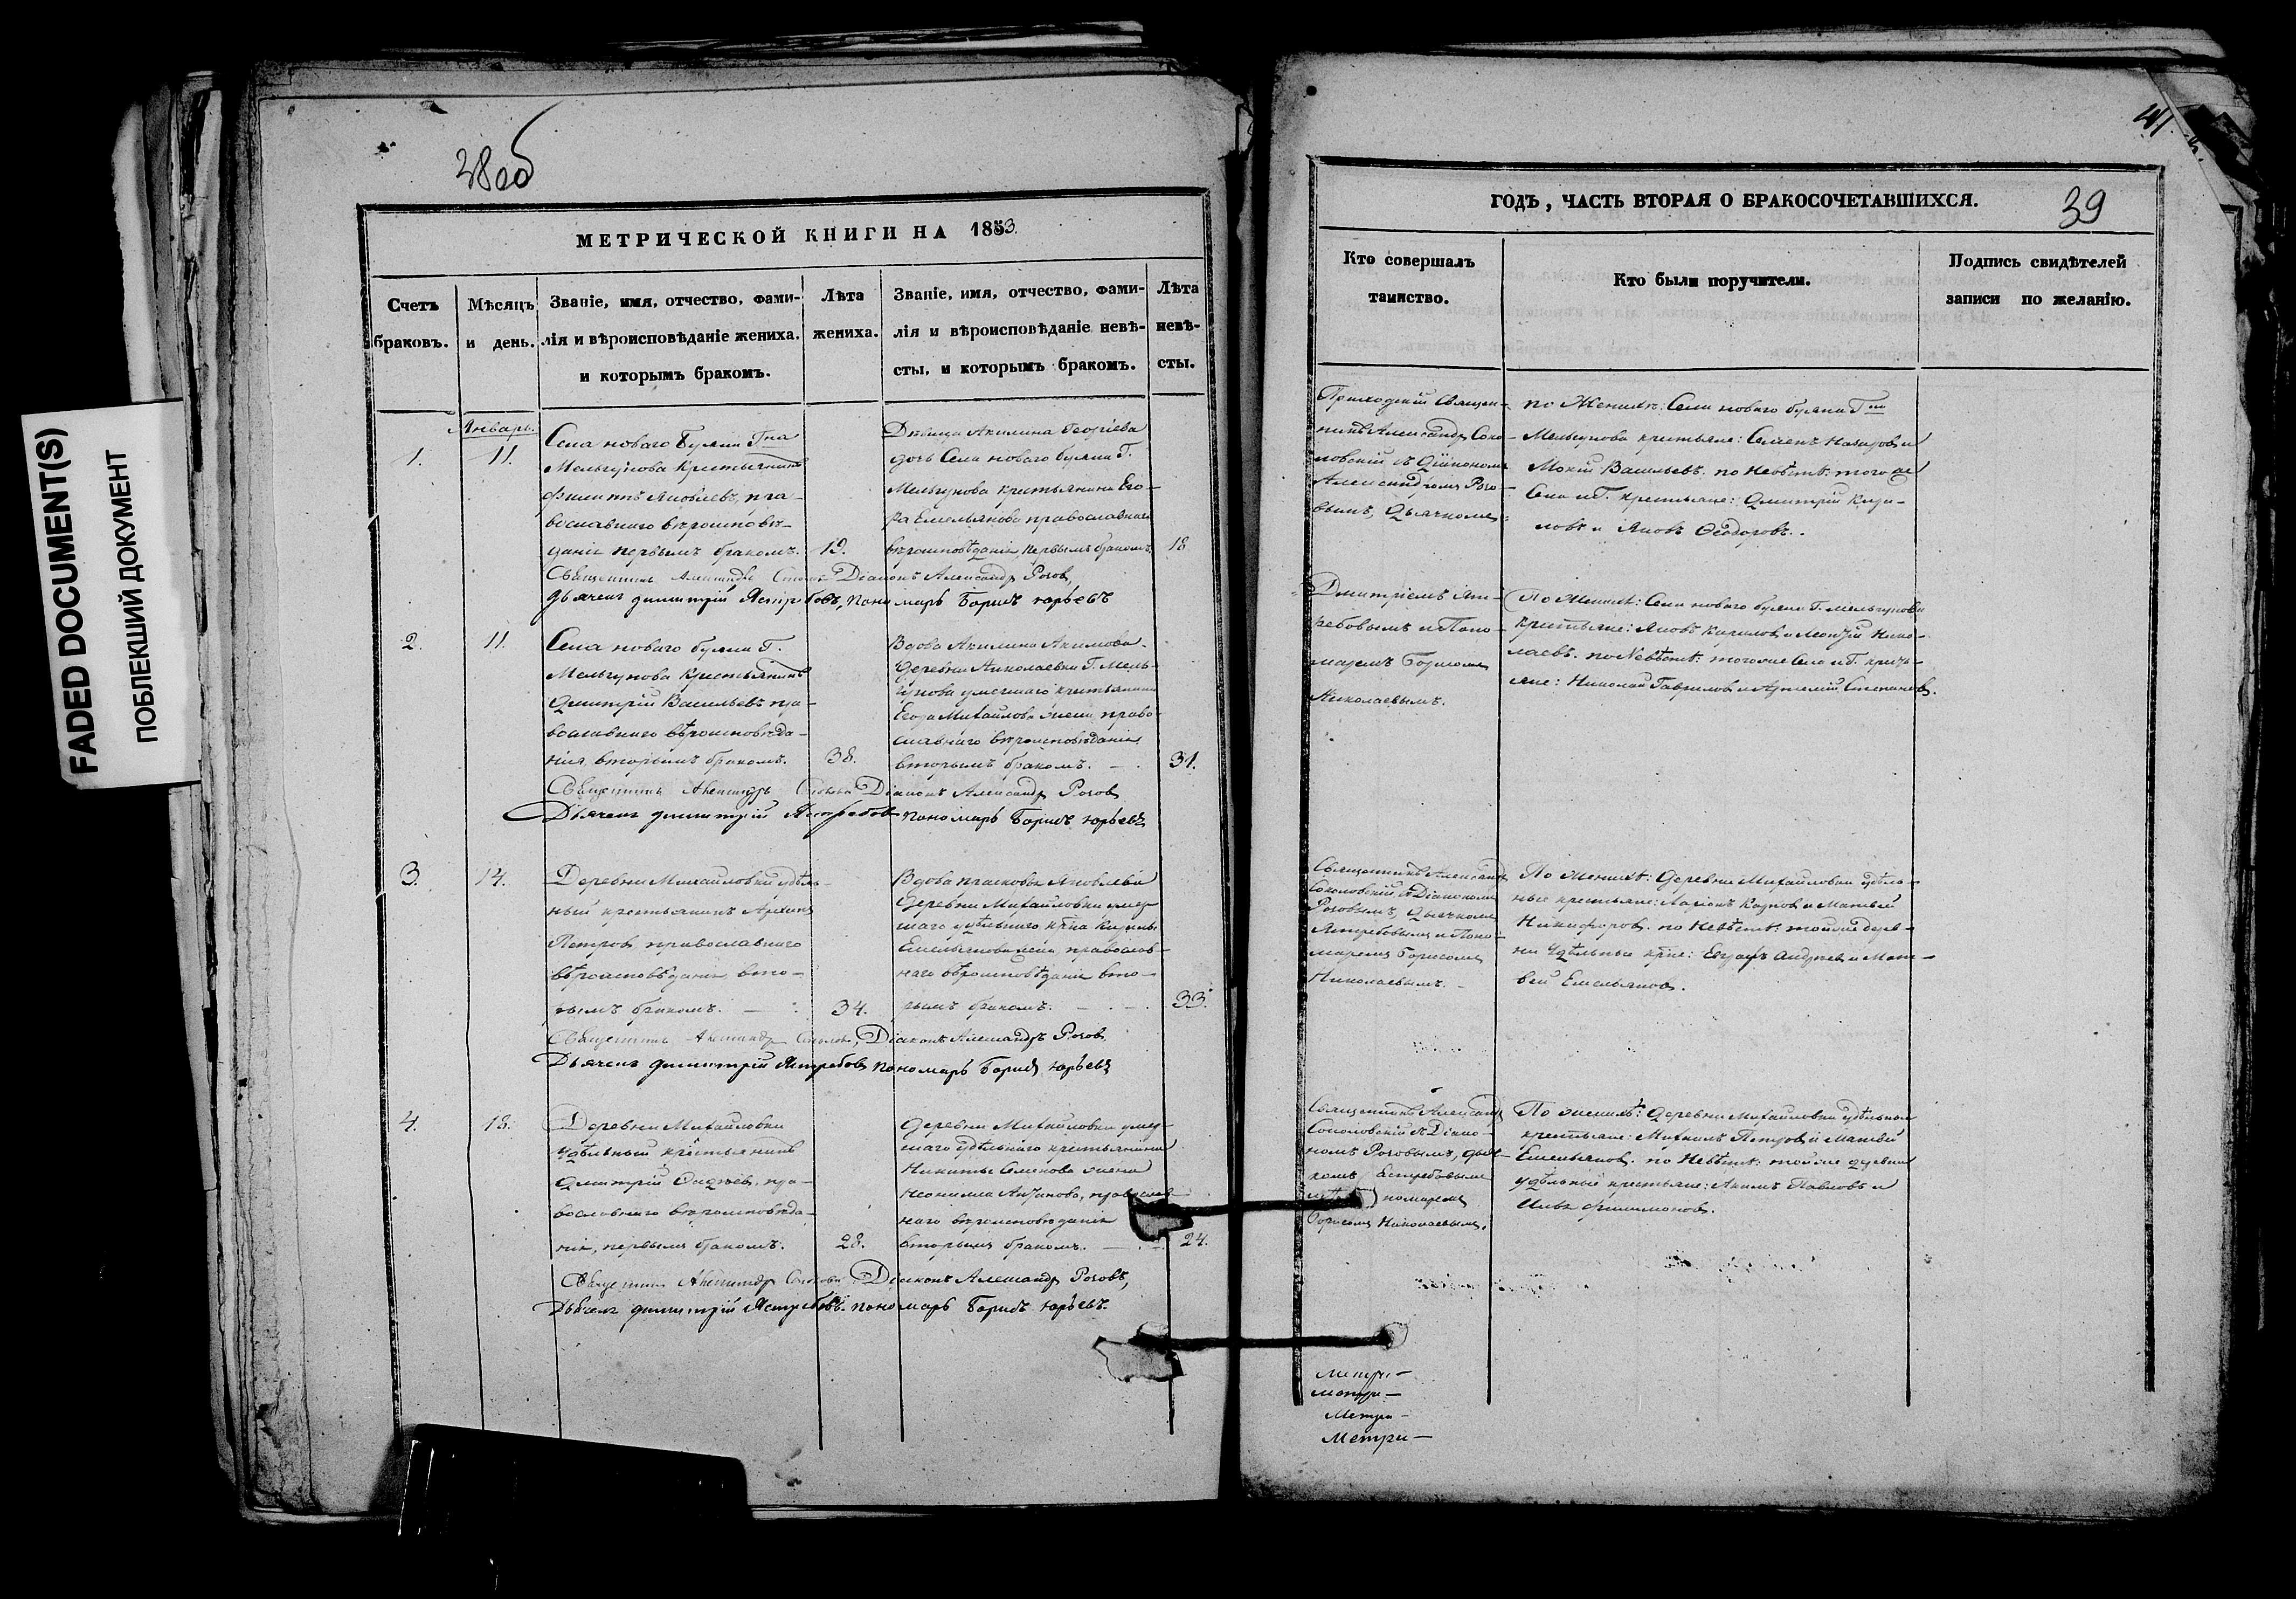 38 об
МЕТРИЧЕСКОЙ КНИГИ НА 1853.
Счетъ браковъ.
Мѣсяцъ и день.
Званіе, имя, отчество, фами-
лія и вѣроисповѣданіе жениха,
и которымъ бракомъ.
Лѣта
жениха.
Званіе, имя, отчество, фами-
лія и вѣроисповѣданіе невѣ-
сты, и которымъ бракомъ.
Лѣта
невѣ-
сты.
Январь.
1.
11.
Села новаго Буяна Гна
Мельгунова Крестьянинъ
Филиппъ Яковлевъ, пра-
вославнаго вѣроисповѣ-
данія первымъ бракомъ.
19.
Дѣвица Акилина Георгіева
дочь Села новаго буяна Г.
Мельгунова крестьянина Его-
ра Емельянова православнаго
вѣроисповѣданія первымъ бракомъ.
18
Священникъ Александръ Діаконъ Александръ Розовъ,
Дьячекъ димитрій Ястребовъ, пономарь Борисъ юрьевъ
2.
11.
Села новаго буяна Г.
Мельгунова Крестьянинъ
Димитрій Васильевъ пра-
вославнаго вѣроисповѣда-
нія, вторымъ бракомъ.
38.
Вдова Акилина Акимова
деревни Николаевки Г. Мель-
гунова умершаго крестьянина
Егора Михайлова жена право-
славнаго вѣроисповѣданія
вторымъ бракомъ.
31.
Священникъ Александръ Діаконъ Александръ Розовъ
Дьячекъ димитрій Ястребовъ пономарь Борисъ юрьевъ
3.
14.
Деревни Михайловки удѣль-
ный крестьянинъ Архипъ
Петровъ православнаго
вѣроисповѣданія вто-
рымъ бракомъ.
34.
Вдова прасковья Яковлева
Деревни Михайловки умер-
шаго удѣльнаго крна
Емельянова жена православ-
наго вѣроисповѣданія вто-
рымъ бракомъ.
33.
Священникъ Александръ Діаконъ Александръ Розовъ
Дьячекъ димитрій Ястребовъ пономарь Борисъ юрьевъ
4.
18.
Деревни Михайловки
Удѣльный крестьянинъ
Димитрій пра-
вославнаго вѣроисповѣда-
нія, первымъ бракомъ.
28.
Деревни Михайловки умер-
шаго удѣльнаго крестьянина
Никиты Семенова жена
православ-
наго вѣроисповѣданія
вторымъ бракомъ.
24.
Священникъ Александръ Діаконъ Александръ Розовъ,
Дьячекъ димитрій Ястребовъ. пономарь Борисъ юрьевъ.
ГОДЪ, ЧАСТЬ ВТОРАЯ О БРАКОСОЧЕТАВШИХСЯ.
39
Кто совершалъ
таинство.
Кто были поручители.
Подпись свидѣтелей
записи по желанію.
Приходскій Священ-
никъ Александръ Соко-
ловскій съ Діакономъ
Александромъ Розо-
вымъ, Дьячкомъ
по Женихѣ: Села новаго буяна Г
Мельгунова крестьяне: Семенъ Назаровъ и
Мокій Васильевъ. по Невѣстѣ: того же
Села и Г. крестьяне: Димитрій Кири-
ловъ и Яковъ Ѳеодоровъ.
Димитріемъ Яст-
ребовымъ и Поно-
маремъ Борисомъ
Николаевымъ.
По Женихѣ: Села новаго буяна Г. Мельгунова
крестьяне: Яковъ Кириловъ и Нико-
лаевъ. по Невѣстѣ: того же Села и Г. кресть-
яне: Николай Гавриловъ и Артемій Степановъ.
Священникъ Александръ
Соколовскій съ Діакономъ
Розовымъ, дьячкомъ
Ястребовымъ и Поно-
маремъ Борисомъ
Николаевымъ.
По женихѣ: Деревни Михайловки удѣль-
ные крестьяне: Ларіонъ Карповъ и Матвей
Никифоровъ. по Невѣстѣ: той же дерев-
ни Удѣльные крне: Андреевъ и Мат-
вей Емельяновъ.
Священникъ Александръ
Соколовскій съ Діако-
номъ Розовымъ, дьяч-
комъ Ястребовымъ
номаремъ
Борисомъ Николаевымъ.
По женихѣ: Деревни Михайловки удѣльные
крестьяне: Михаилъ Петровъ и Матвей
Емельяновъ. по Невѣстѣ: той же деревни
удѣльные крестьяне: Акимъ Павловъ и
Филимоновъ.
Метри-
Метри-
Метри-
Метри-
FADED DOCUMENT(S)
ПОБЛЕКШИЙ ДОКУМЕНТ